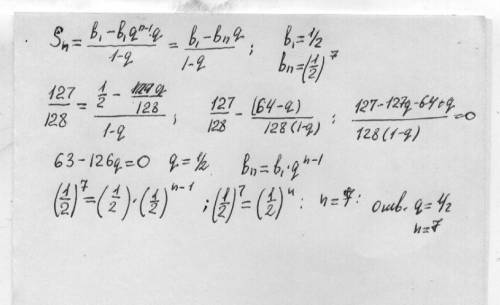 Sₙ = (b₁ - b₁qⁿ⁻¹q)/(1-q) = (b₁ - bₙq)/(1-q) ; b₁ = 1/2
bₙ = (1/2)⁷
127/128 = (1/2 - q/128)/(1-q) ; 127/128 - (64-q)/(128(1-q)) ; (127-127q-64+q)/(128(1-q)) = 0
63-126q=0 q=1/2 bₙ=b₁·qⁿ⁻¹
(1/2)⁷ = (1/2)·(1/2)ⁿ⁻¹ ; (1/2)⁷ = (1/2)ⁿ : n=7: отв. q=1/2
n=7